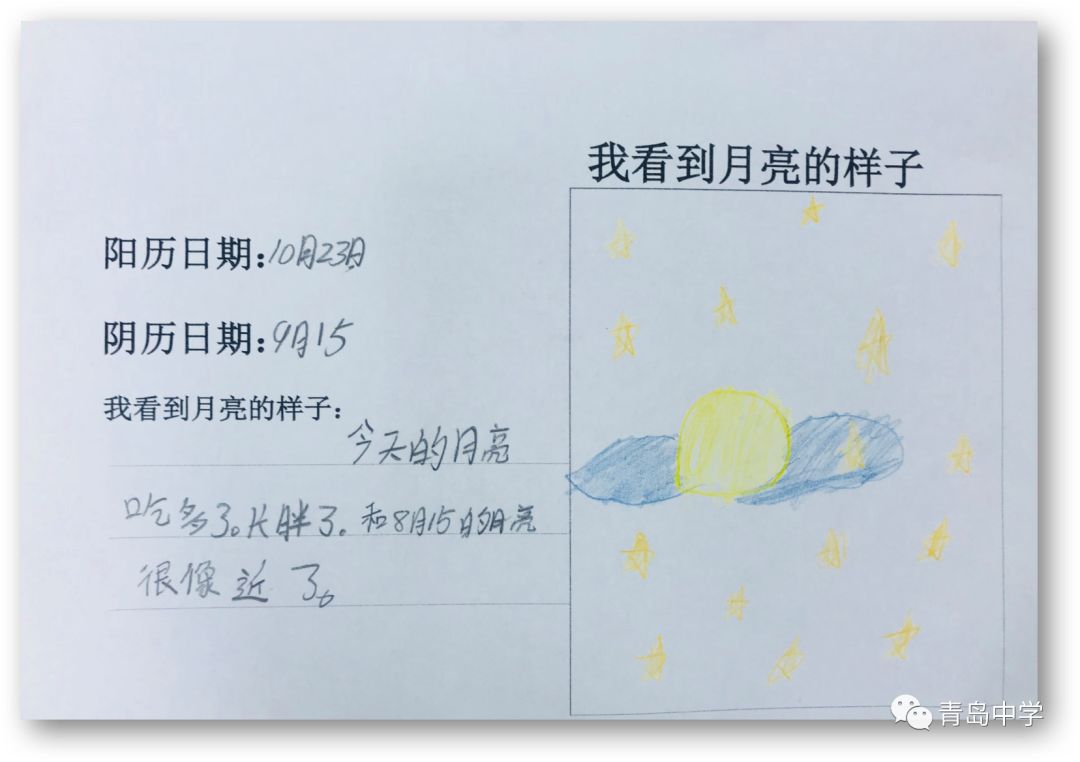 我看到月亮的样子
阳历日期:10月23日
阴历日期:9月15
我看到月亮的样子:
今天的月亮
吃多了。长胖了。和8月15的月亮
很像近了。
青岛中学